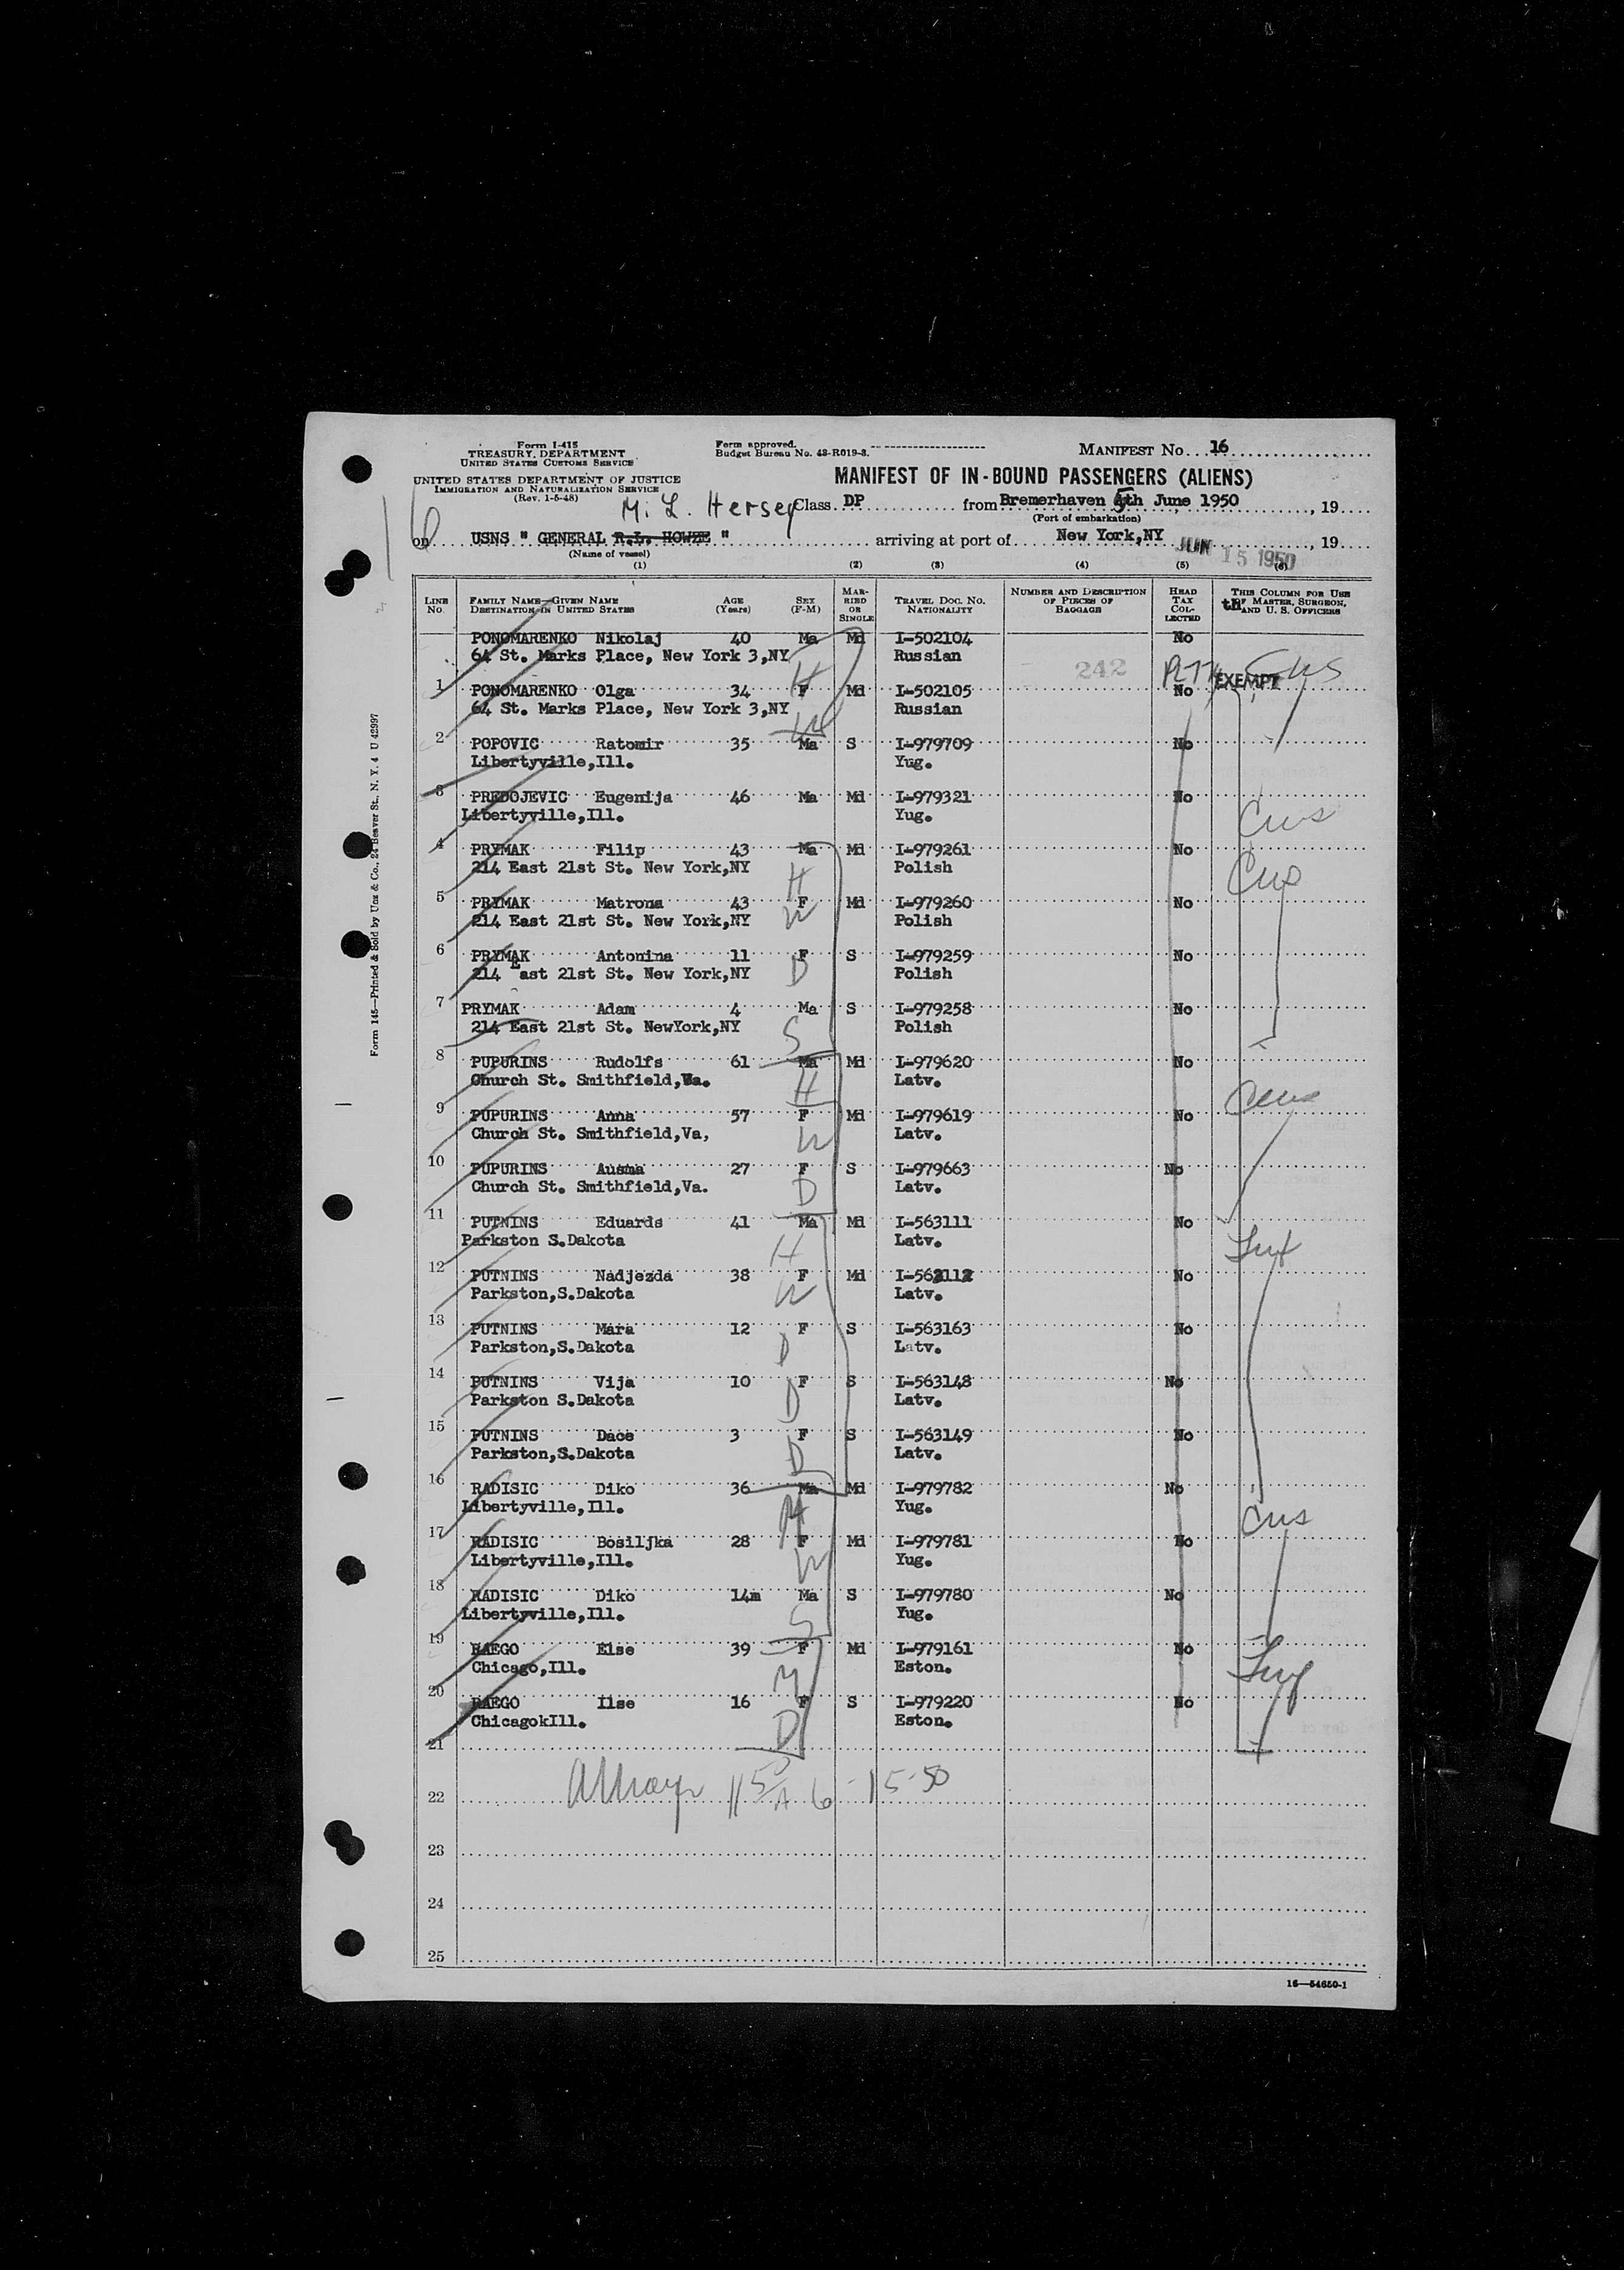 Form I-415
TREASURY DEPARTMENT
UNITED STATES CUSTOMS SERVICE
UNITED STATES DEPARTMENT OF JUSTICE
IMMIGRATION AND NATURALIZATION SERVICE
(Rev. 1-5-48)
Form approved.
Budget Bureau No. 43-R019-3.
MANIFEST NO. 16
MANIFEST OF IN-BOUND PASSENGERS (ALIENS)
M. L. Hersey Class DP from Bremerhaven 5th June 1950, 19
(Port of embarkation)
on USNS " GENERAL R.L. HOWZE " arriving at port of New York,NY JUN 15 1950, 19
(Name of vessel)
(1) (2) (3) (4) (5) (6)
LINE NO. FAMILY NAME—GIVEN NAME DESTINATION IN UNITED STATES AGE (Years) SEX (F-M) MARRIED OR SINGLE TRAVEL DOC. NO. NATIONALITY NUMBER AND DESCRIPTION OF PIECES OF BAGGAGE HEAD TAX COLLECTED THIS COLUMN FOR USE OF MASTER, SURGEON, AND U. S. OFFICERS
PONOMARENKO Nikolaj 40 Ma Md I-502104 No
64 St. Marks Place, New York 3,NY Russian 242
1 PONOMARENKO Olga 34 H F Md I-502105 No EXEMPT
64 St. Marks Place, New York 3,NY W Russian
2 POPOVIC Ratomir 35 Ma S I-979709 No
Libertyville,Ill. Yug.
3 PREDOJEVIC Eugenija 46 Ma Md I-979321 No
Libertyville,Ill. Yug. Cws
4 PRYMAK Filip 43 Ma Md I-979261 No
214 East 21st St. New York,NY H Polish Cws
5 PRYMAK Matrona 43 F Md I-979260 No
214 East 21st St. New York,NY W Polish
6 PRYMAK Antonina 11 F S I-979259 No
214 East 21st St. New York,NY D Polish
7 PRYMAK Adam 4 Ma S I-979258 No
214 East 21st St. NewYork,NY S Polish
8 PUPURINS Rudolfs 61 Ma Md I-979620 No
Church St. Smithfield,Va. H Latv.
9 PUPURINS Anna 57 F Md I-979619 No
Church St. Smithfield,Va, W Latv.
10 PUPURINS Ausma 27 F S I-979663 No
Church St. Smithfield,Va. D Latv.
11 PUTNINS Eduards 41 Ma Md I-563111 No
Parkston S.Dakota H Latv.
12 PUTNINS Nadjezda 38 F Md I-563112 No
Parkston,S.Dakota W Latv.
13 PUTNINS Mara 12 F S I-563163 No
Parkston,S.Dakota D Latv.
14 PUTNINS Vija 10 F S I-563148 No
Parkston S.Dakota D Latv.
15 PUTNINS Dace 3 F S I-563149 No
Parkston,S.Dakota D Latv.
16 RADISIC Diko 36 Ma Md I-979782 No
Libertyville,Ill. H Yug. Cws
17 RADISIC Bosiljka 28 F Md I-979781 No
Libertyville,Ill. W Yug.
18 RADISIC Diko 14m Ma S I-979780 No
Libertyville,Ill. S Yug.
19 RAEGO Else 39 F Md I-979161 No
Chicago,Ill. M Eston.
20 RAEGO Ilse 16 F S I-979220 No
ChicagokIll. D Eston.
21
22 6-15-50
23
24
25
16—54650-1
Form 145—Printed & Sold by Unz & Co., 24 Beaver St., N. Y. 4 U 42997